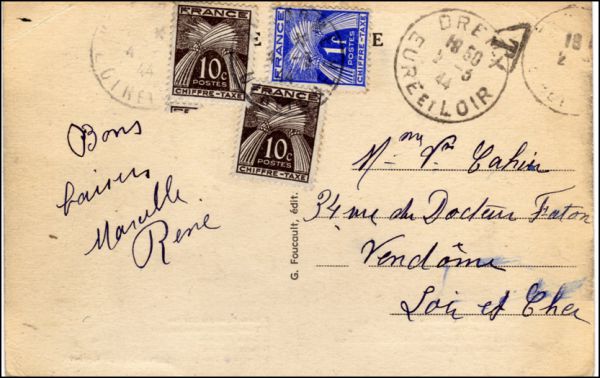 FRANCE
10c
POSTES
CHIFFRE-TAXE
FRANCE
1F
POSTES
CHIFFRE-TAXE
FRANCE
10c
POSTES
CHIFFRE-TAXE
E
DREUX
18 30
3-3
44
EURE ET LOIR
T
18
2
44
Bons
baisers
Marcelle
René
G. Foucault, édit.
Mme Vve Cahu
34 rue du Docteur Faton
Vendôme
Loir et Cher